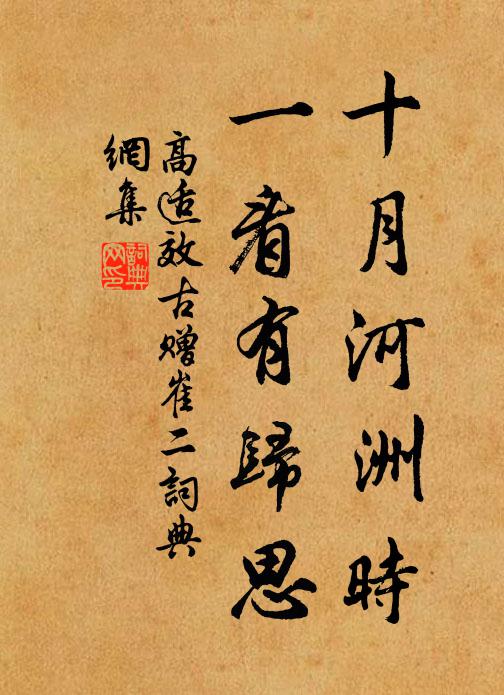 十月河洲時
一看有歸思
高适效古赠崔二詞典
網集
詞典網印